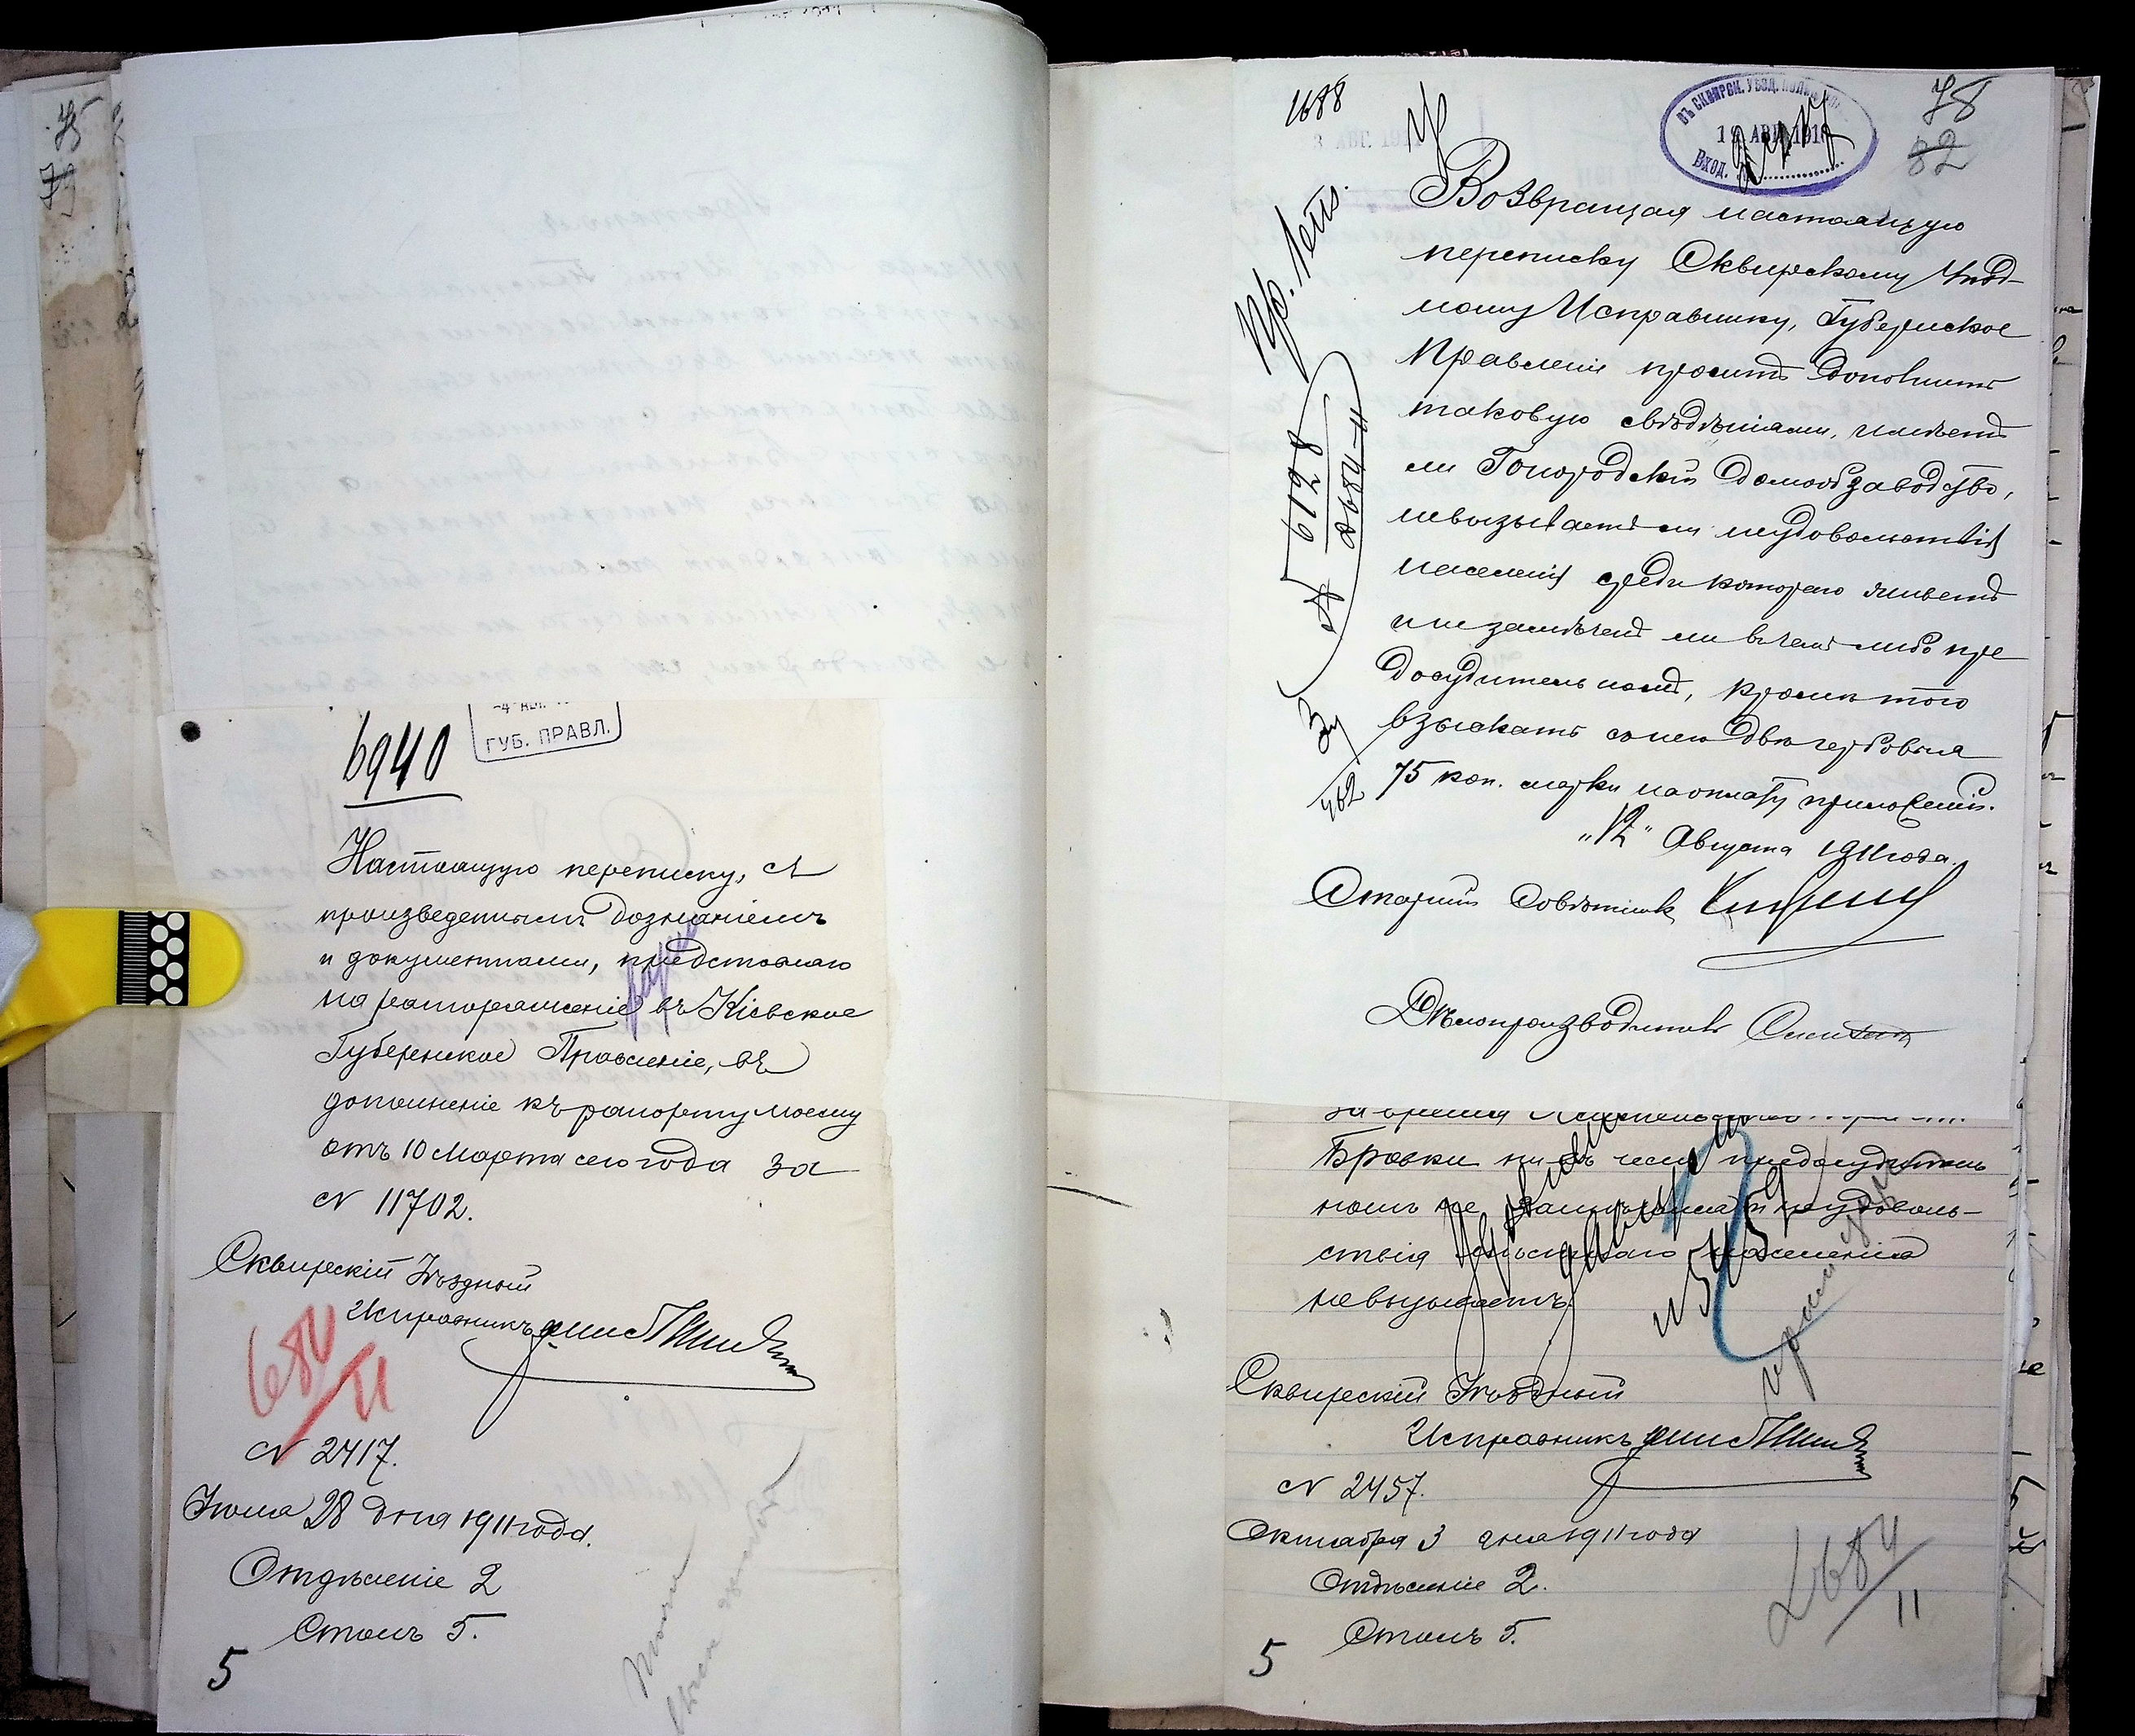 75
79
-4 АВГ.
ГУБ. ПРАВЛ.
6940
Настоящую переписку, съ
произведеннымъ дознаніемъ
и документами, представляю
на распоряженіе въ Кіевское
Губернское Правленіе, въ
дополненіе къ рапорту моему
отъ 10 Марта сего года за
№ 11702.
Сквирскій Уѣздный
Исправникъ
684/11
№ 2417.
Іюля 28 дня 1911 года.
Отдѣленіе 2
Столъ 5.
5
1688
ВЪ СКВИРСК. УѢЗД. ПОЛИЦ.
19 АВГ 191
Вход.
78
82
Возвращая настоящую
переписку Сквирскому Уѣзд-
ному Исправнику, Губернское
Правленіе проситъ дополнить
таковую свѣдѣніями, имѣетъ
ли Гопородскій домообзаводство,
не вызываетъ ли неудовольствія
населенія среди котораго живетъ
и не замѣченъ ли въ чемъ либо пре
досудительномъ, кромѣ того
взыскать съ нея двѣ гербовыя
75 коп. марки на оплату приложеній.
„12" Августа 1911 года.
Старшій Совѣтникъ
Дѣлопроизводитель
№ 6128
2684-11
Бровки ни въ чемъ предосудитель
номъ не замѣчалась и неудоволь-
ствія мѣстнаго населенія
не вызываетъ.
Сквирскій Уѣздный
Исправникъ
№ 2457.
Октября 3 дня 1911 года
Отдѣленіе 2.
Столъ 5.
5
2684/11